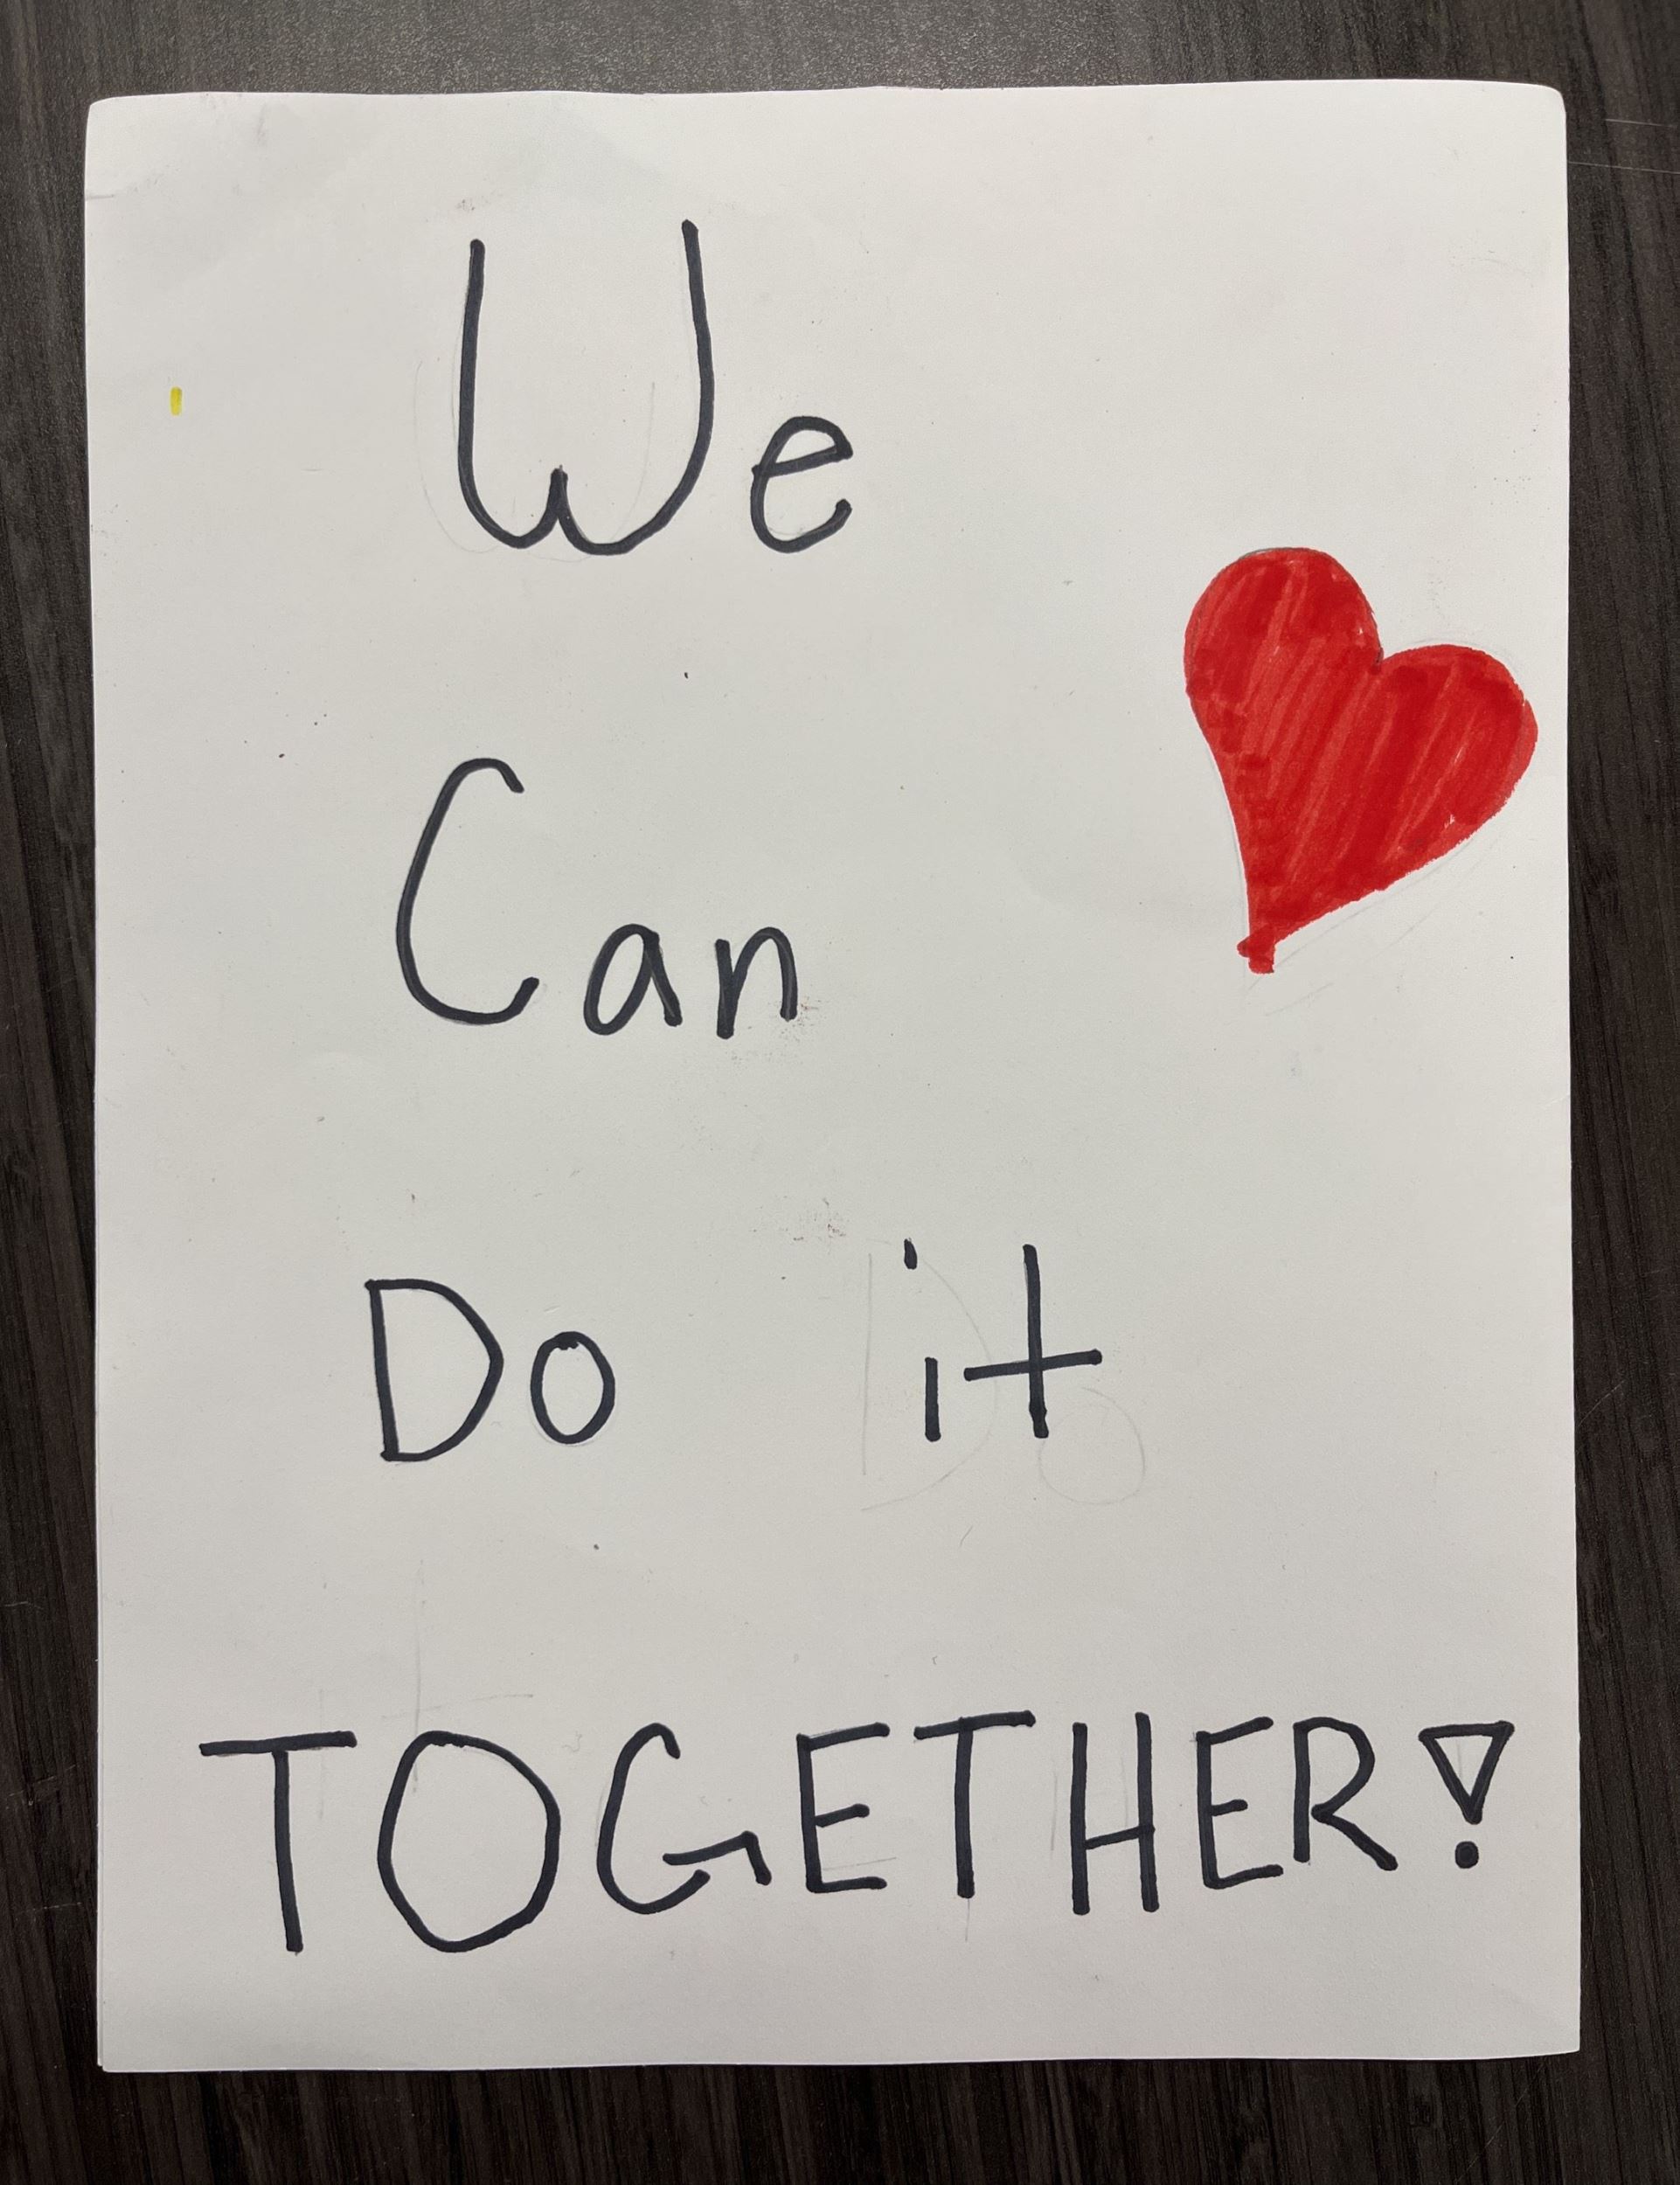 We
Can
Do it
TOGETHER!